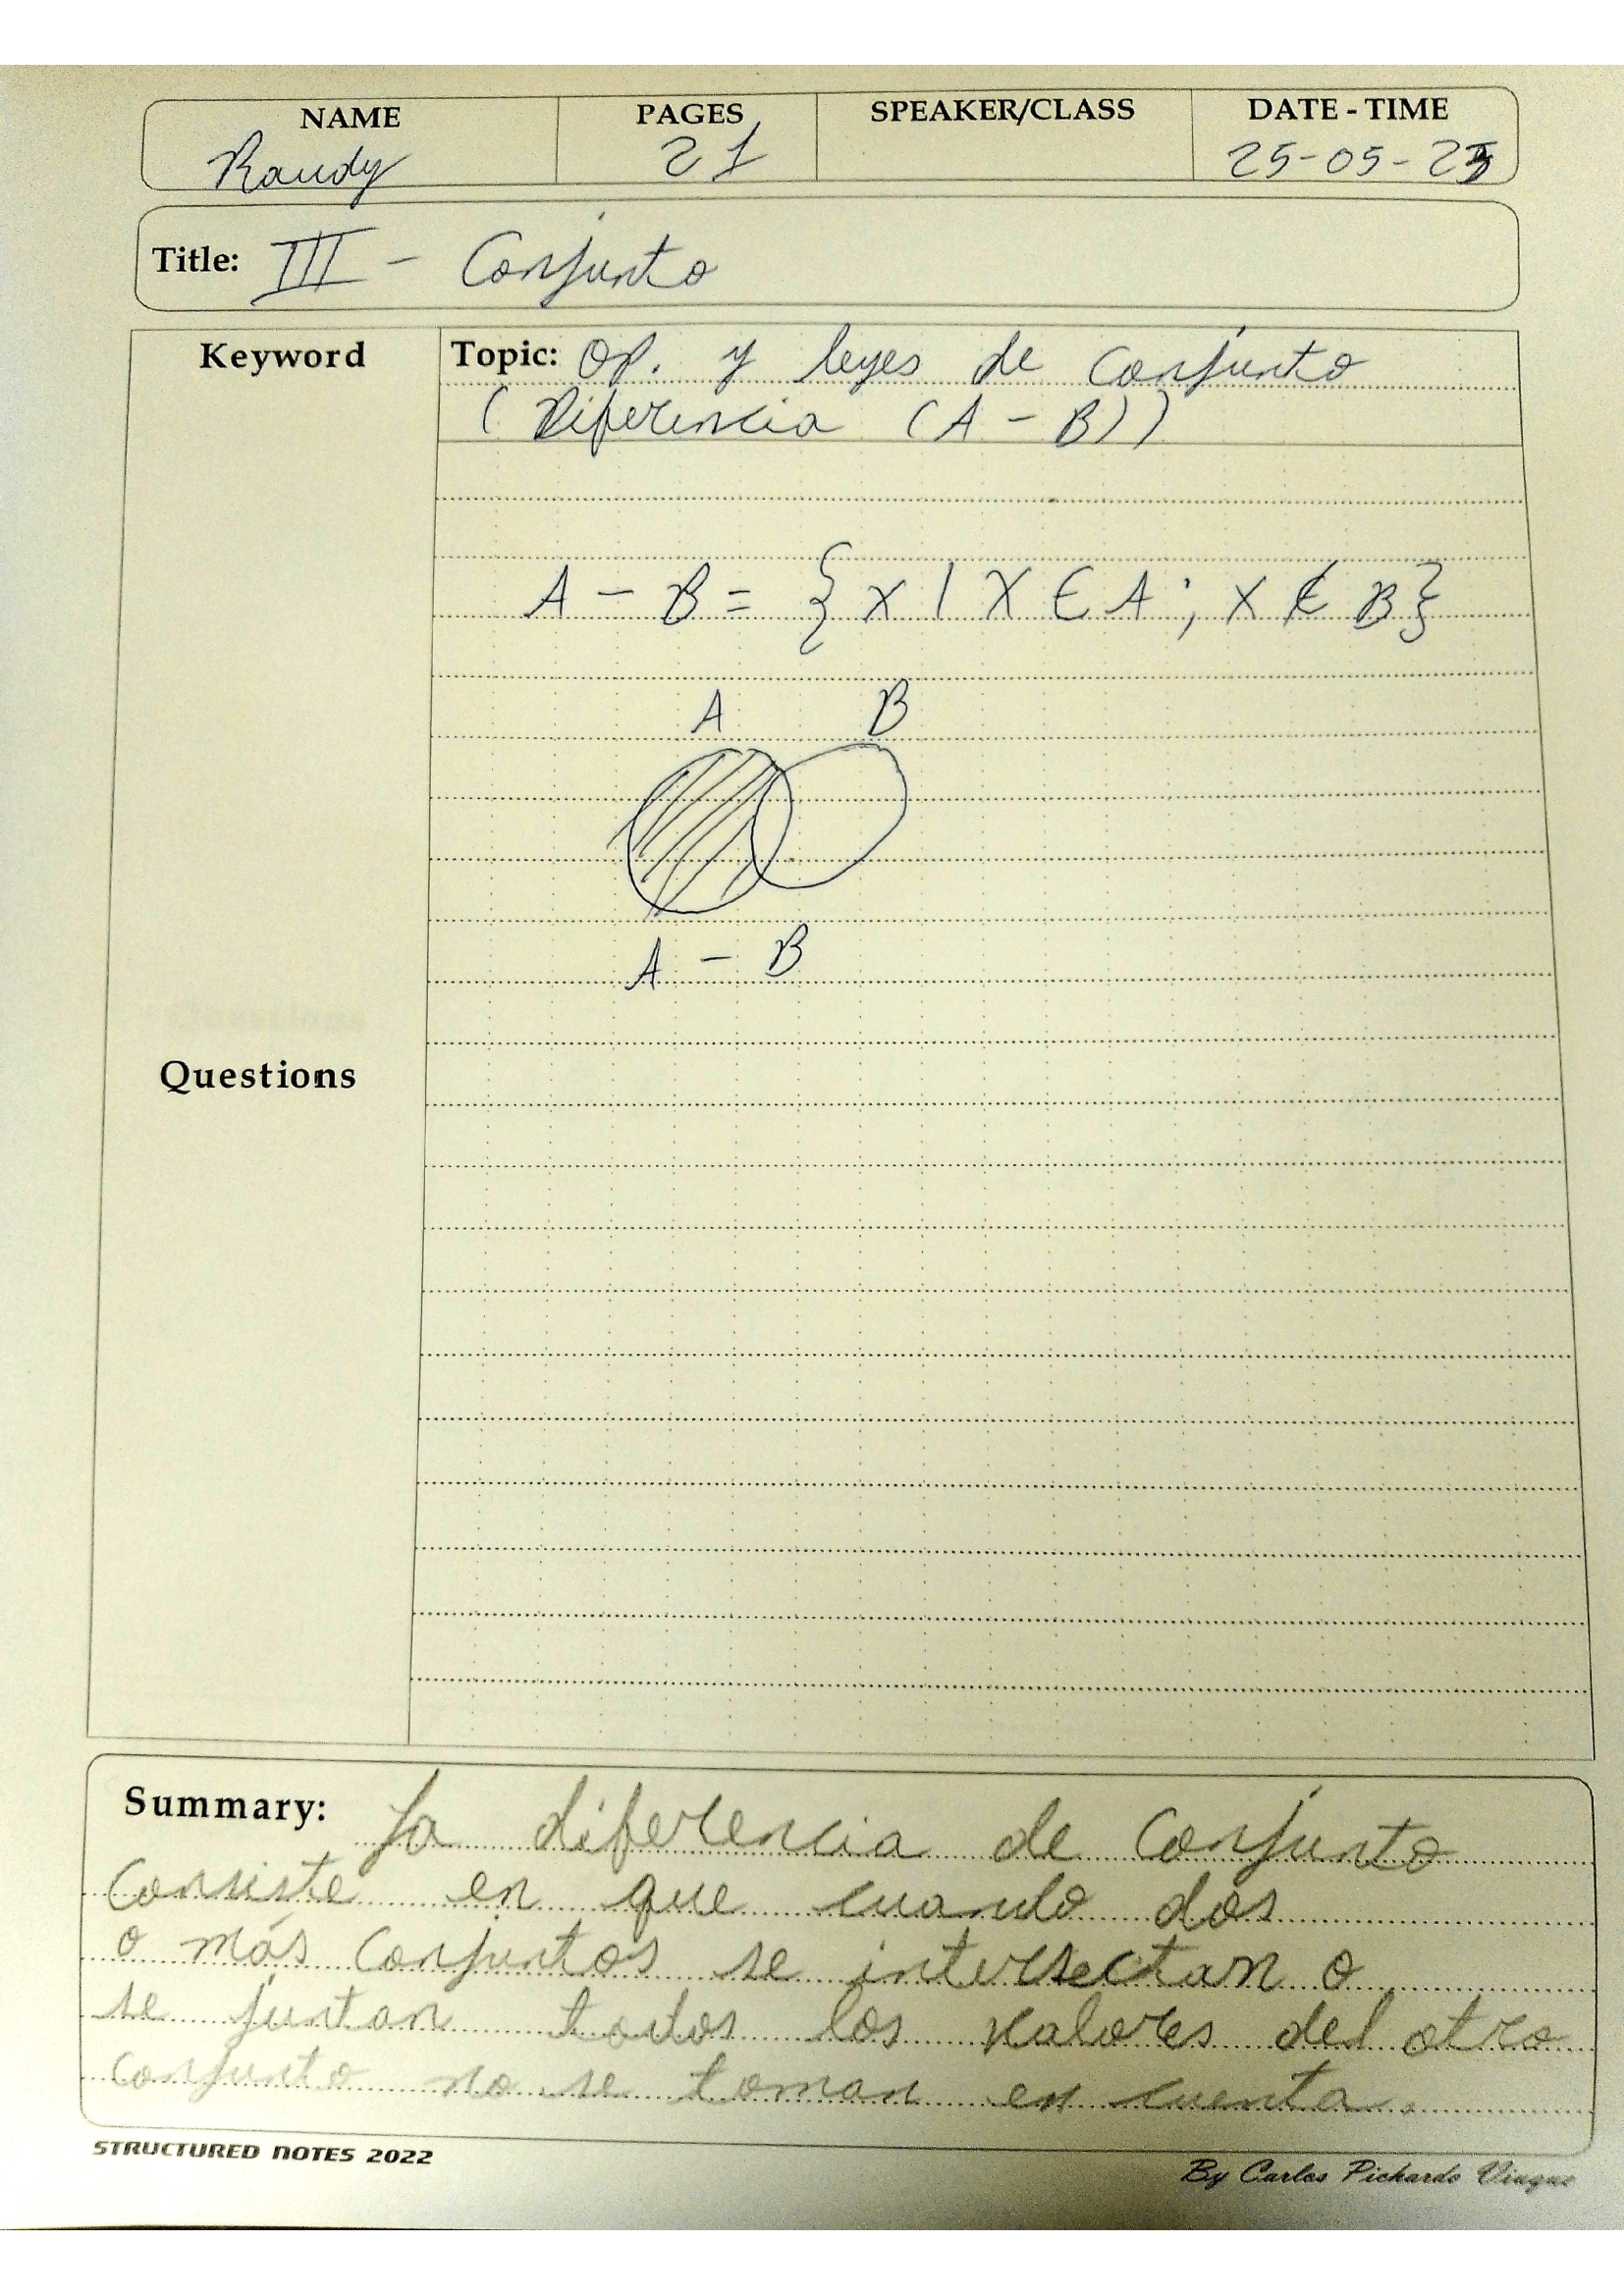 NAME PAGES SPEAKER/CLASS DATE - TIME
Raudy 21 25-05-23
Title: III - Conjunto
Keyword Topic: Op. y leyes de Conjunto
(Diferencia (A - B))
A - B = { x | x ∈ A ; x ∉ B }
A B
A - B
Questions
Summary: La diferencia de Conjunto
Consiste en que cuando dos
o más Conjuntos se intersectan o
se juntan todos los valores del otro
conjunto no se toman en cuenta.
STRUCTURED NOTES 2022
By Carlos Pichardo Viuque